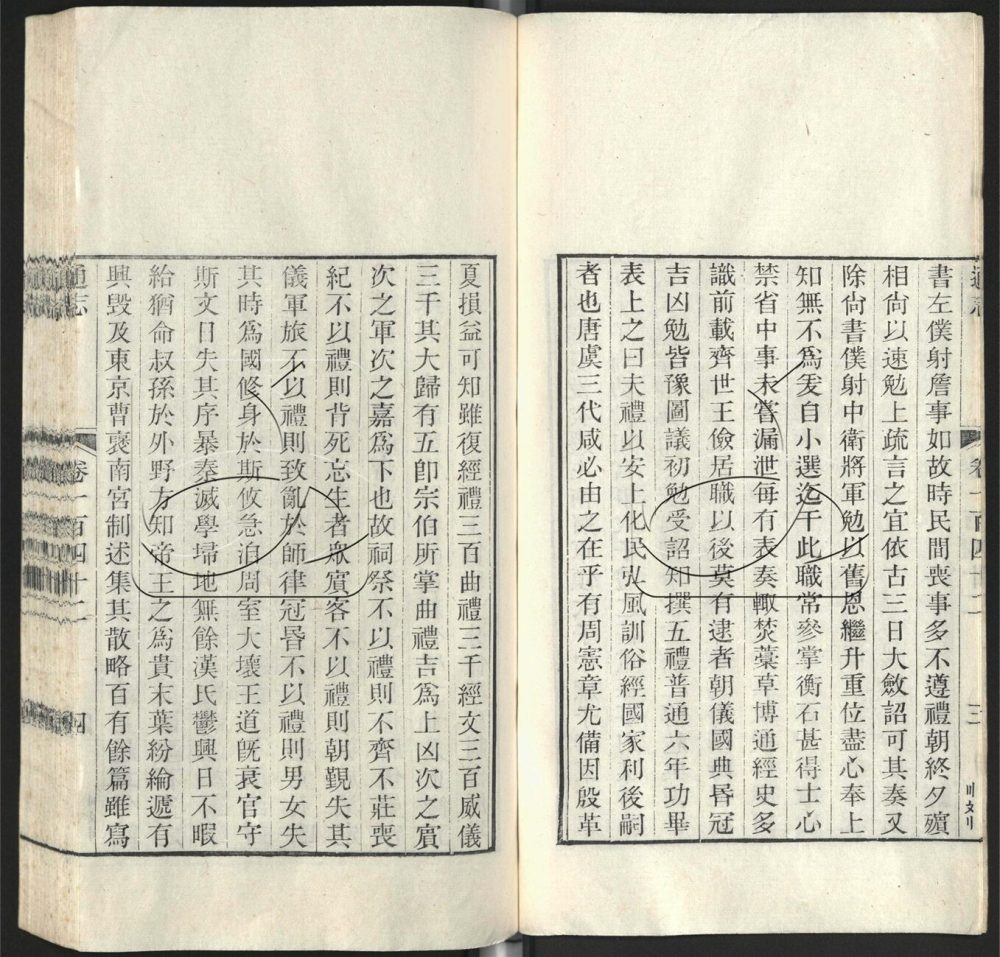 書左僕射詹事如故時民間喪事多不遵禮朝終夕殯
相尚以速勉上疏言之宜依古三日大斂詔可其奏又
除尚書僕射中衛將軍勉以舊恩繼升重位盡心奉上
知無不爲爰自小選迄于此職常參掌衡石甚得士心
禁省中事未嘗漏泄每有表奏輙焚藁草博通經史多
識前載齊世王儉居職以後莫有逮者朝儀國典昏冠
吉凶勉皆豫圖議初勉受詔知撰五禮普通六年功畢
表上之曰夫禮以安上化民弘風訓俗經國家利後嗣
者也唐虞三代咸必由之在乎有周憲章尤備因殷革
夏損益可知雖復經禮三百曲禮三千經文三百威儀
三千其大歸有五卽宗伯所掌曲禮吉爲上凶次之賓
次之軍次之嘉爲下也故祠祭不以禮則不齊不莊喪
紀不以禮則背死忘生者眾賓客不以禮則朝覲失其
儀軍旅不以禮則致亂於師律冠昏不以禮則男女失
其時爲國修身於斯攸急洎周室大壞王道旣衰官守
斯文日失其序暴秦滅學埽地無餘漢氏鬱興日不暇
給猶命叔孫於外野方知帝王之爲貴末葉紛綸遞有
興毀及東京曹襃南宮制述集其散略百有餘篇雖寫
通志
卷一百四十二
四